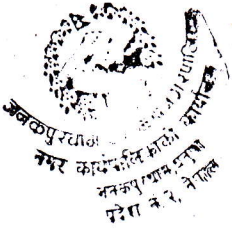 जनकपुरधाम
नगर कार्यपालिकाको कार्यालय
जनकपुरधाम, धनुषा
प्रदेश नं. २, नेपाल